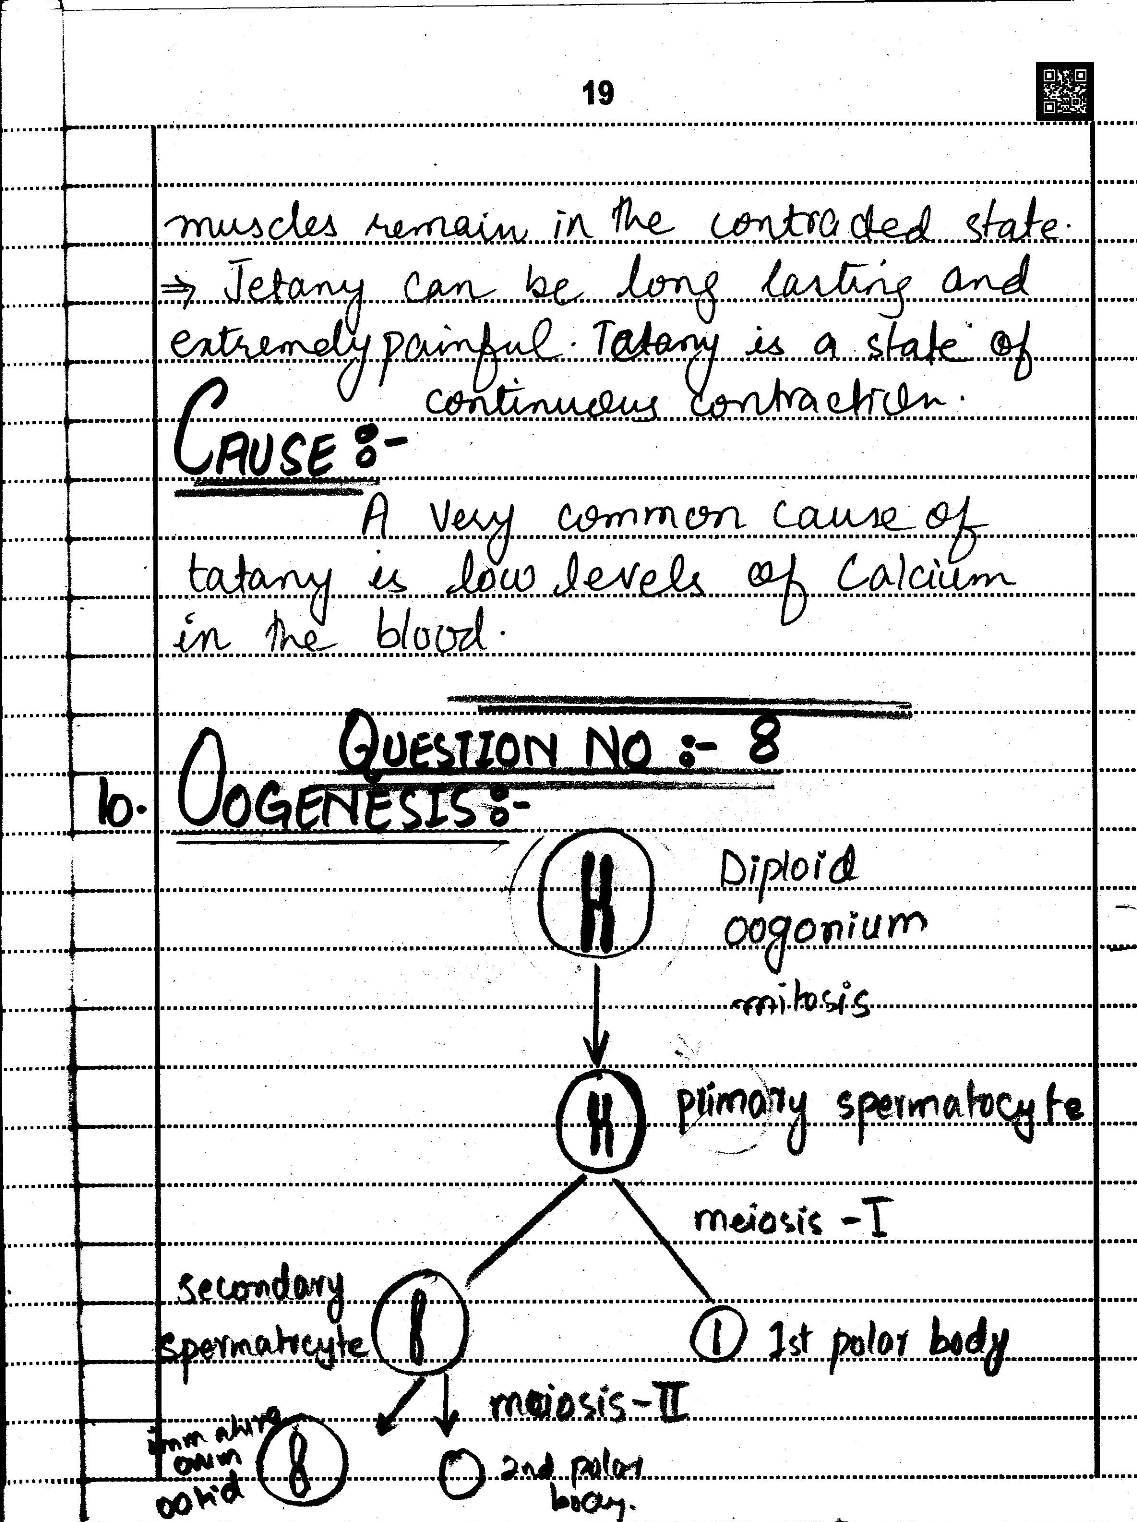 19
muscles remain in the contracted state.
⇒ Tetany can be long lasting and
extremely painful. Tatany is a state of
continuous contraction.
CAUSE :-
A very common cause of
tatany is low levels of Calcium
in the blood.
QUESTION NO :- 8
b. OOGENESIS :-
Diploid
oogonium
mitosis
primary spermatocyte
meiosis - I
secondary
spermatocyte
1st polar body
meiosis - II
immature
ovum
ootid
2nd polar
body.